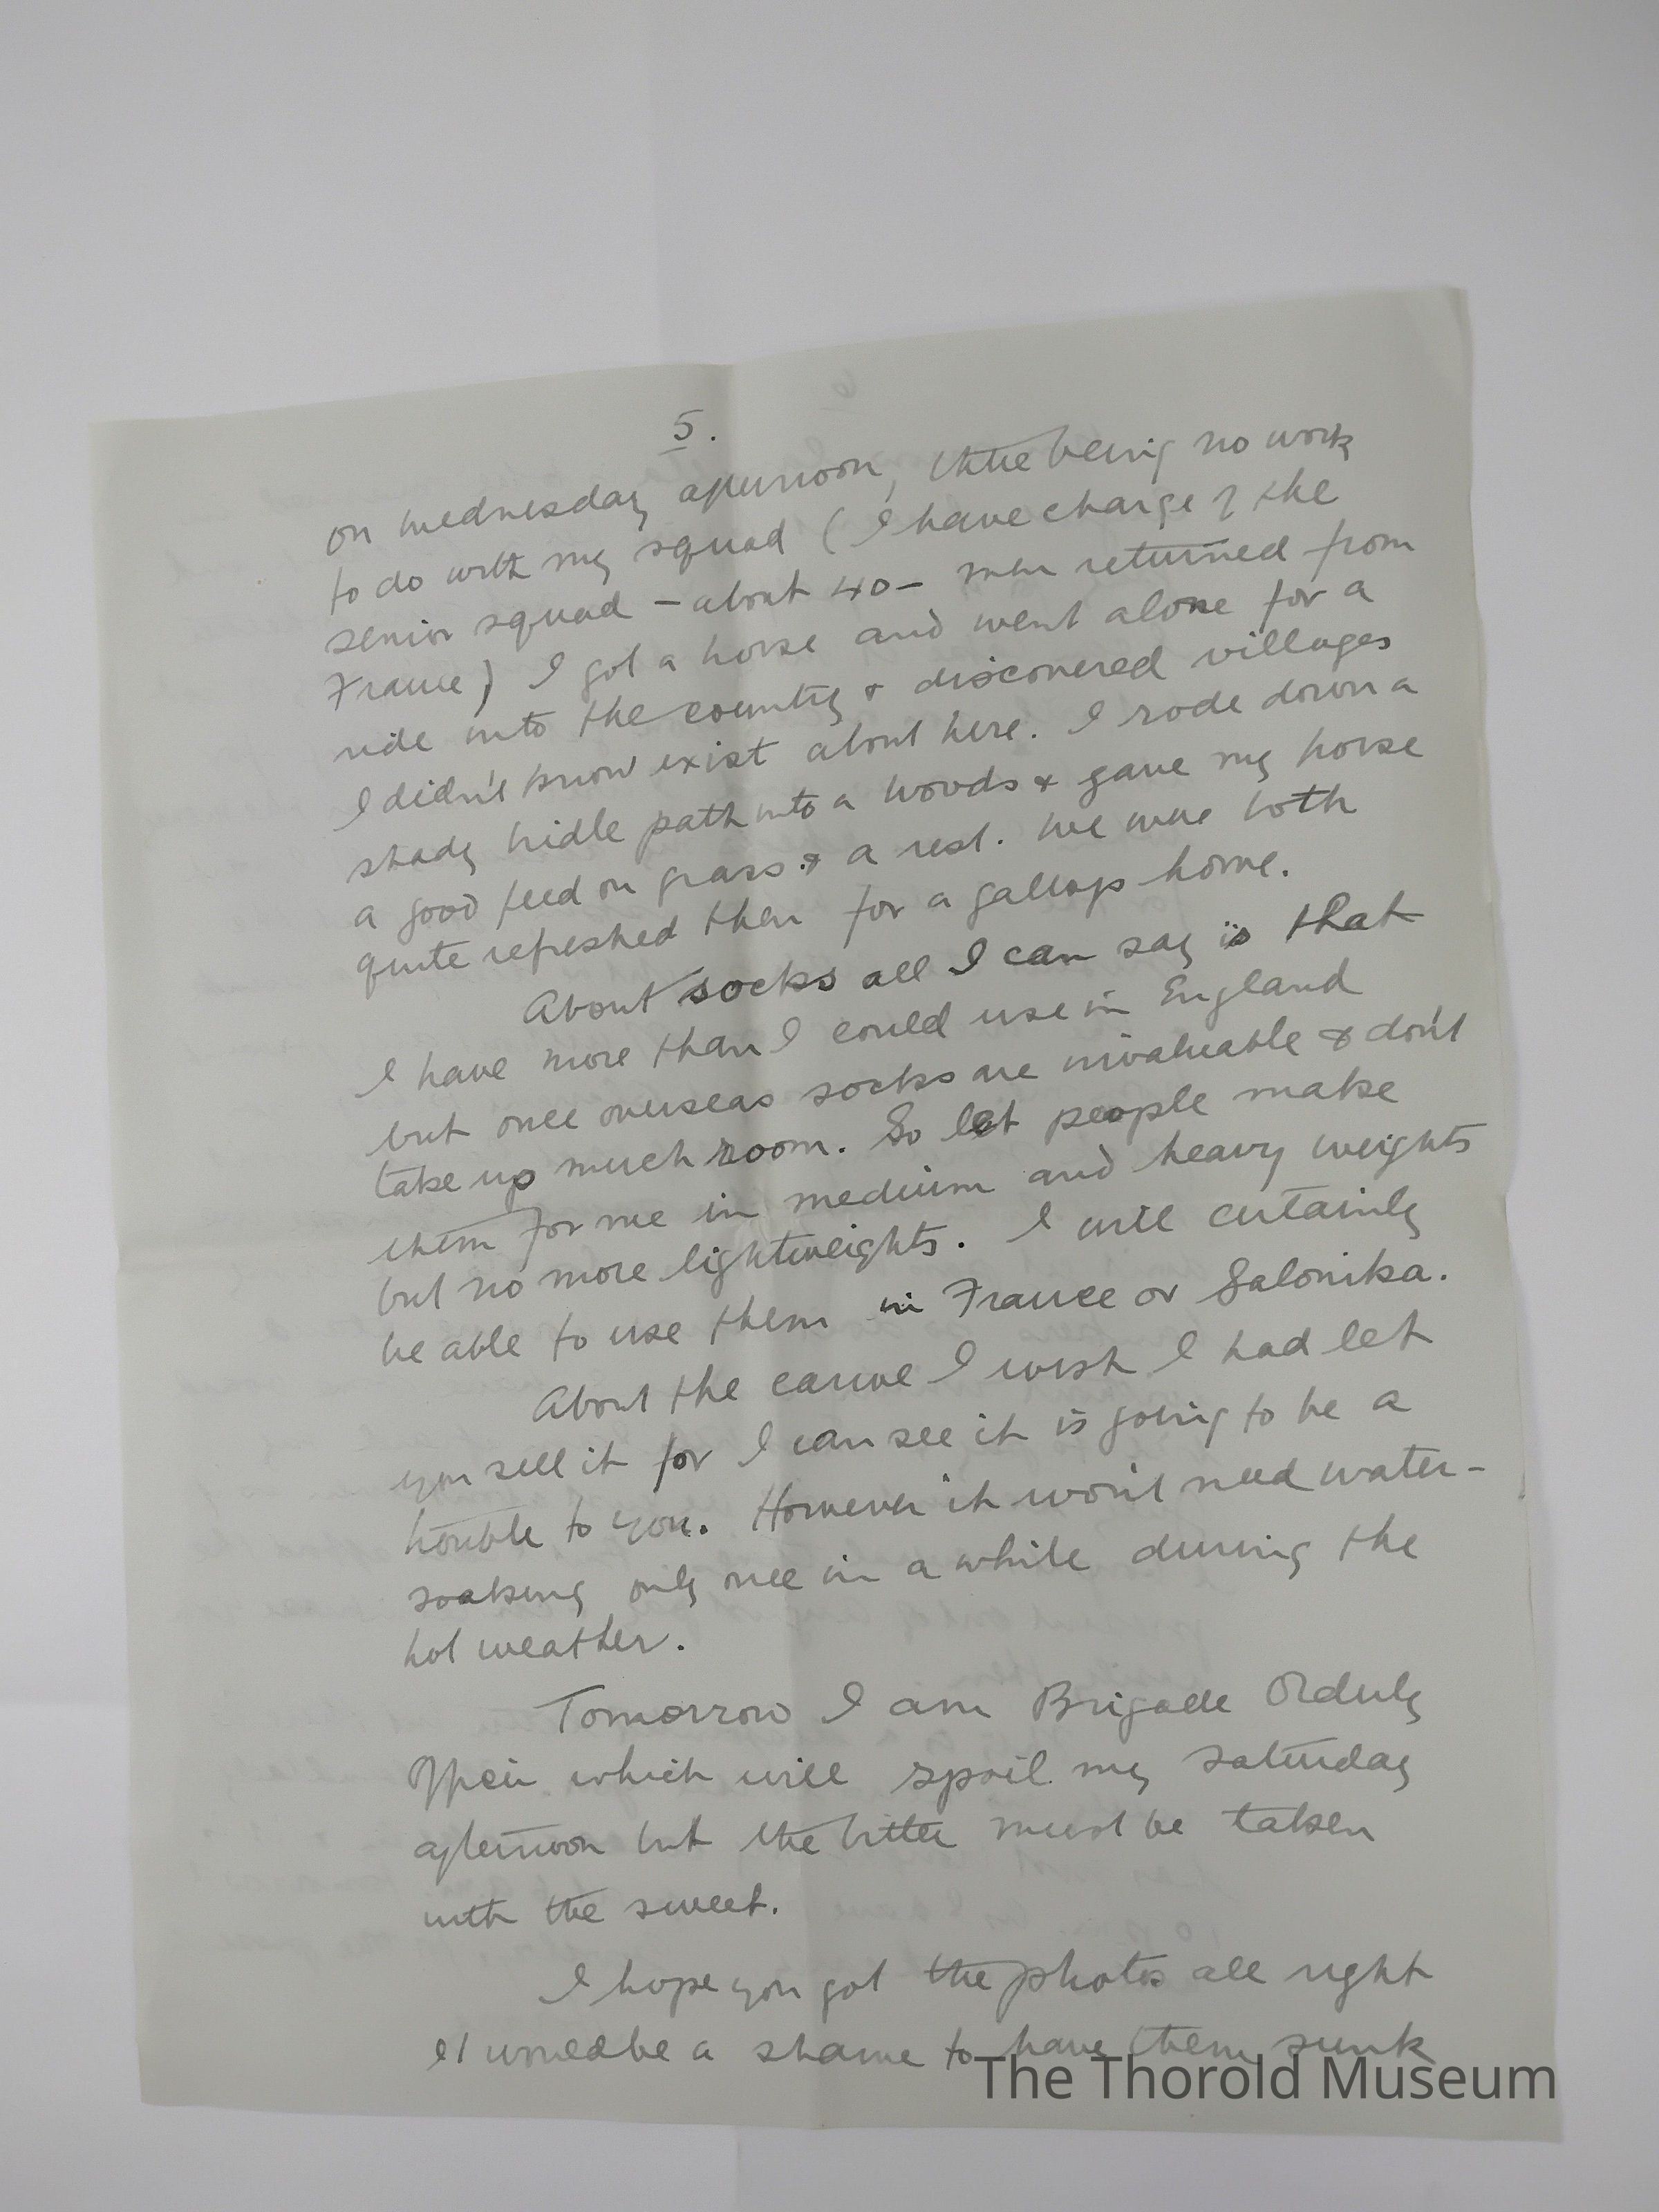 5.
on Wednesday afternoon, there being no work
to do with my squad (I have charge of the
senior squad - about 40 - men returned from
France) I got a horse and went alone for a
ride into the country & discovered villages
I didn't know exist about here. I rode down a
shady bridle path into a woods & gave my horse
a good feed on grass & a rest. We were both
quite refreshed then for a gallop home.
About socks all I can say is that
I have more than I could use in England
but once overseas socks are invaluable & don't
take up much room. So let people make
them for me in medium and heavy weights
but no more lightweights. I will certainly
be able to use them in France or Salonika.
About the canoe I wish I had let
you sell it for I can see it is going to be a
trouble to you. However it won't need water-
soaking only once in a while during the
hot weather.
Tomorrow I am Brigade Orderly
Officer which will spoil my Saturday
afternoon but the bitter must be taken
with the sweet.
I hope you got the photos all right
It would be a shame to have them sunk
The Thorold Museum